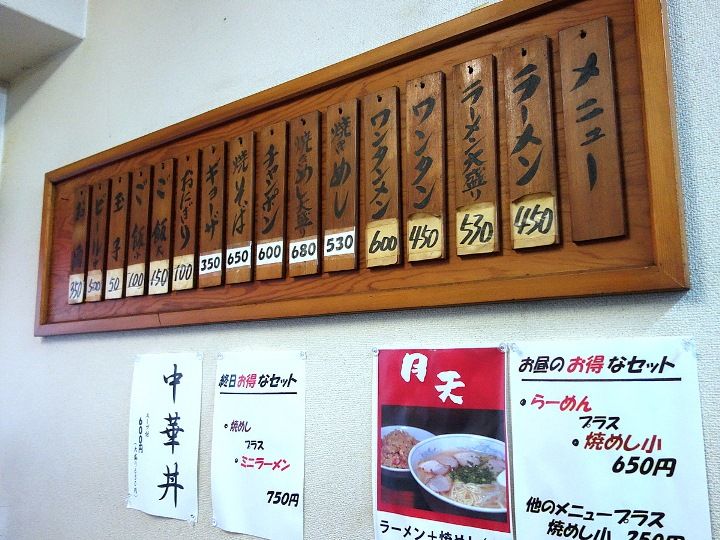 メニュー
ラーメン
450
ラーメン大盛り
530
ワンタン
450
ワンタンメン
600
焼きめし
530
焼きめし大盛
680
チャンポン
600
焼そば
650
ギョーザ
350
おにぎり
100
ご飯
150
ご飯小
100
玉子
50
ビール
500
お酒
350
中華丼
スープ付
600円
終日お得なセット
・焼めし
プラス
・ミニラーメン
750円
月天
ラーメン+焼めし
お昼のお得なセット
・らーめん
プラス
・焼めし小
650円
他のメニュープラス
焼めし小